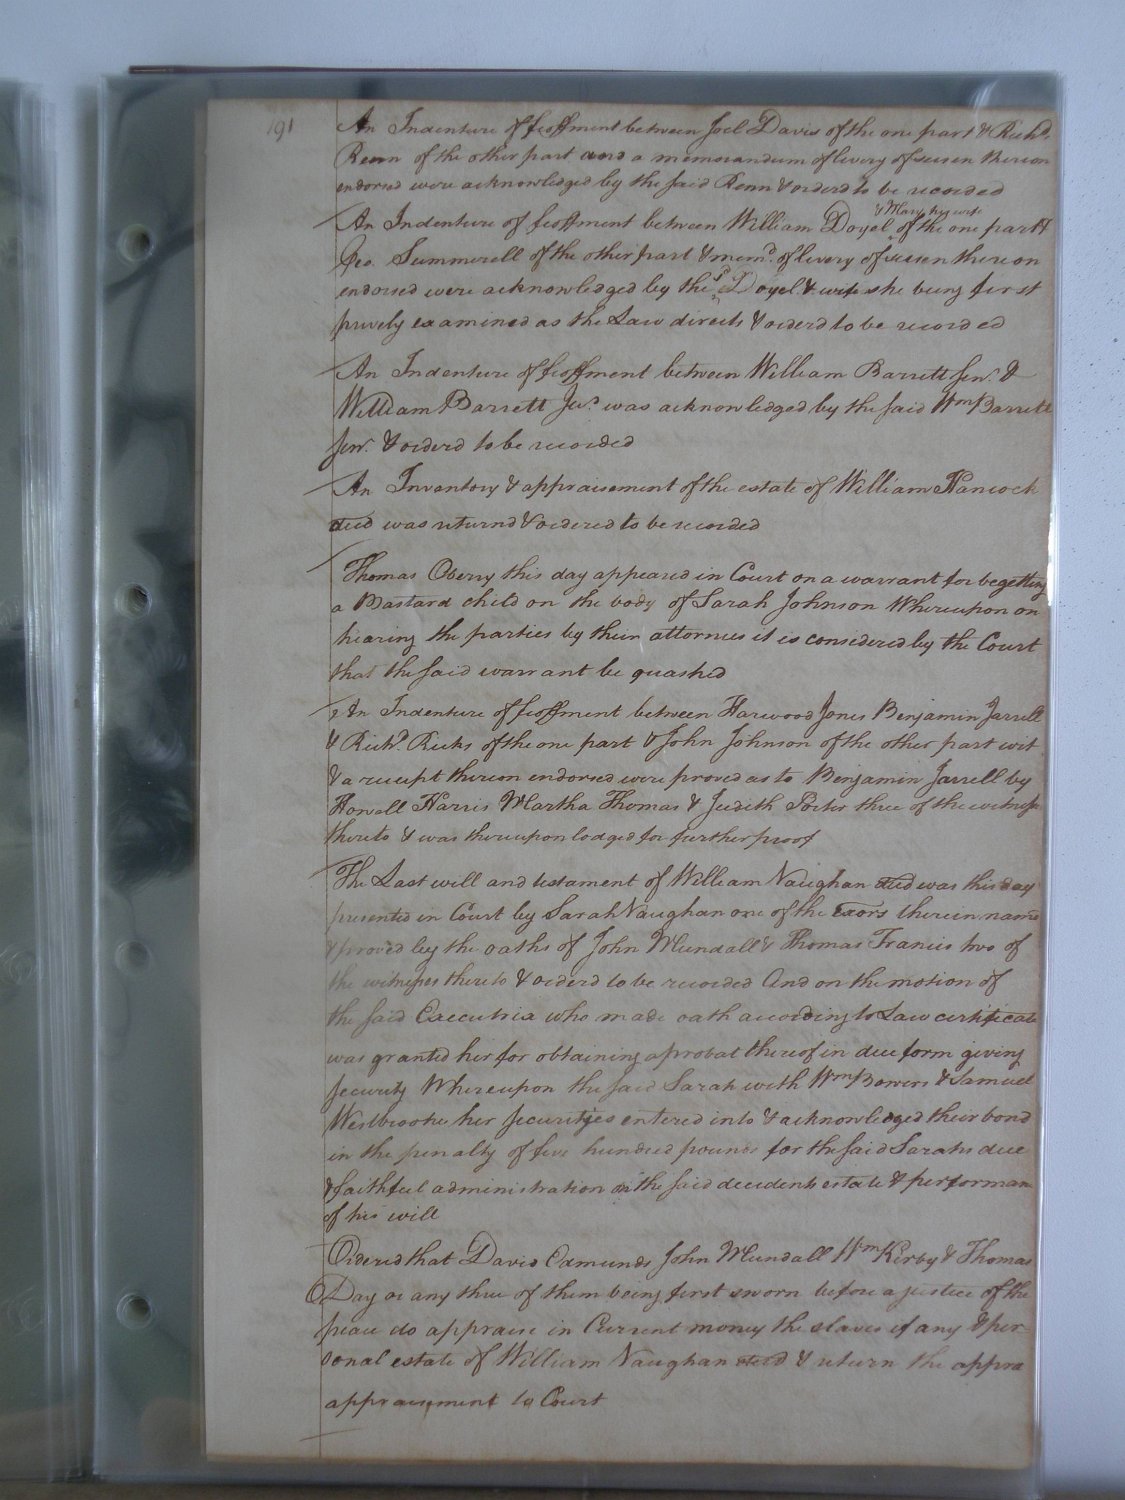 191
An Indenture of feoffment between Joel Davis of the one part & Richd.
Renn of the other part and a memorandum of livery of seisen thereon
endorsed were acknowledged by the said Renn & orderd to be recorded
& Mary his wife
An Indenture of feoffment between William Doyel of the one part &
Geo. Summerell of the other part & memd. of livery of seisen thereon
endorsed were acknowledged by the sd Doyel & wife she being first
privily examined as the Law directs & orderd to be recorded
An Indenture of feoffment between William Barrett Senr. &
William Barrett Junr. was acknowledged by the said Wm Barrett
Senr. & orderd to be recorded
An Inventory & appraisement of the estate of William Hancock
decd was returnd & ordered to be recorded
Thomas Oberry this day appeared in Court on a warrant for begetting
a Bastard child on the body of Sarah Johnson Whereupon on
hearing the parties by their attornies it is considered by the Court
that the said warrant be quashed
An Indenture of feoffment between Harwood Jones Benjamin Jarrell
& Richd. Ricks of the one part & John Johnson of the other part wit
& a receipt thereon endorsed were proved as to Benjamin Jarrell by
Howell Harris Martha Thomas & Judith Porter three of the witness
thereto & was thereupon lodged for further proof
The Last will and testament of William Vaughan decd was this day
presented in Court by Sarah Vaughan one of the Exors therein named
& proved by the oaths of John Mundall & Thomas Francis two of
the witnesses thereto & orderd to be recorded And on the motion of
the said Executrix who made oath according to Law certificate
was granted her for obtaining a probat thereof in due form giving
security Whereupon the said Sarah with Wm Bowers & Samuel
Westbrooke her securities entered into & acknowledged their bond
in the penalty of five hundred pounds for the said Sarahs due
& faithful administration on the said decedents estate & performan
of his will
Ordered that David Edmunds John Mundall Wm Kirby & Thomas
O Day or any three of them being first sworn before a justice of the
peace do appraise in Current money the slaves if any & per-
sonal estate of William Vaughan decd & return the appra
appraisement to Court